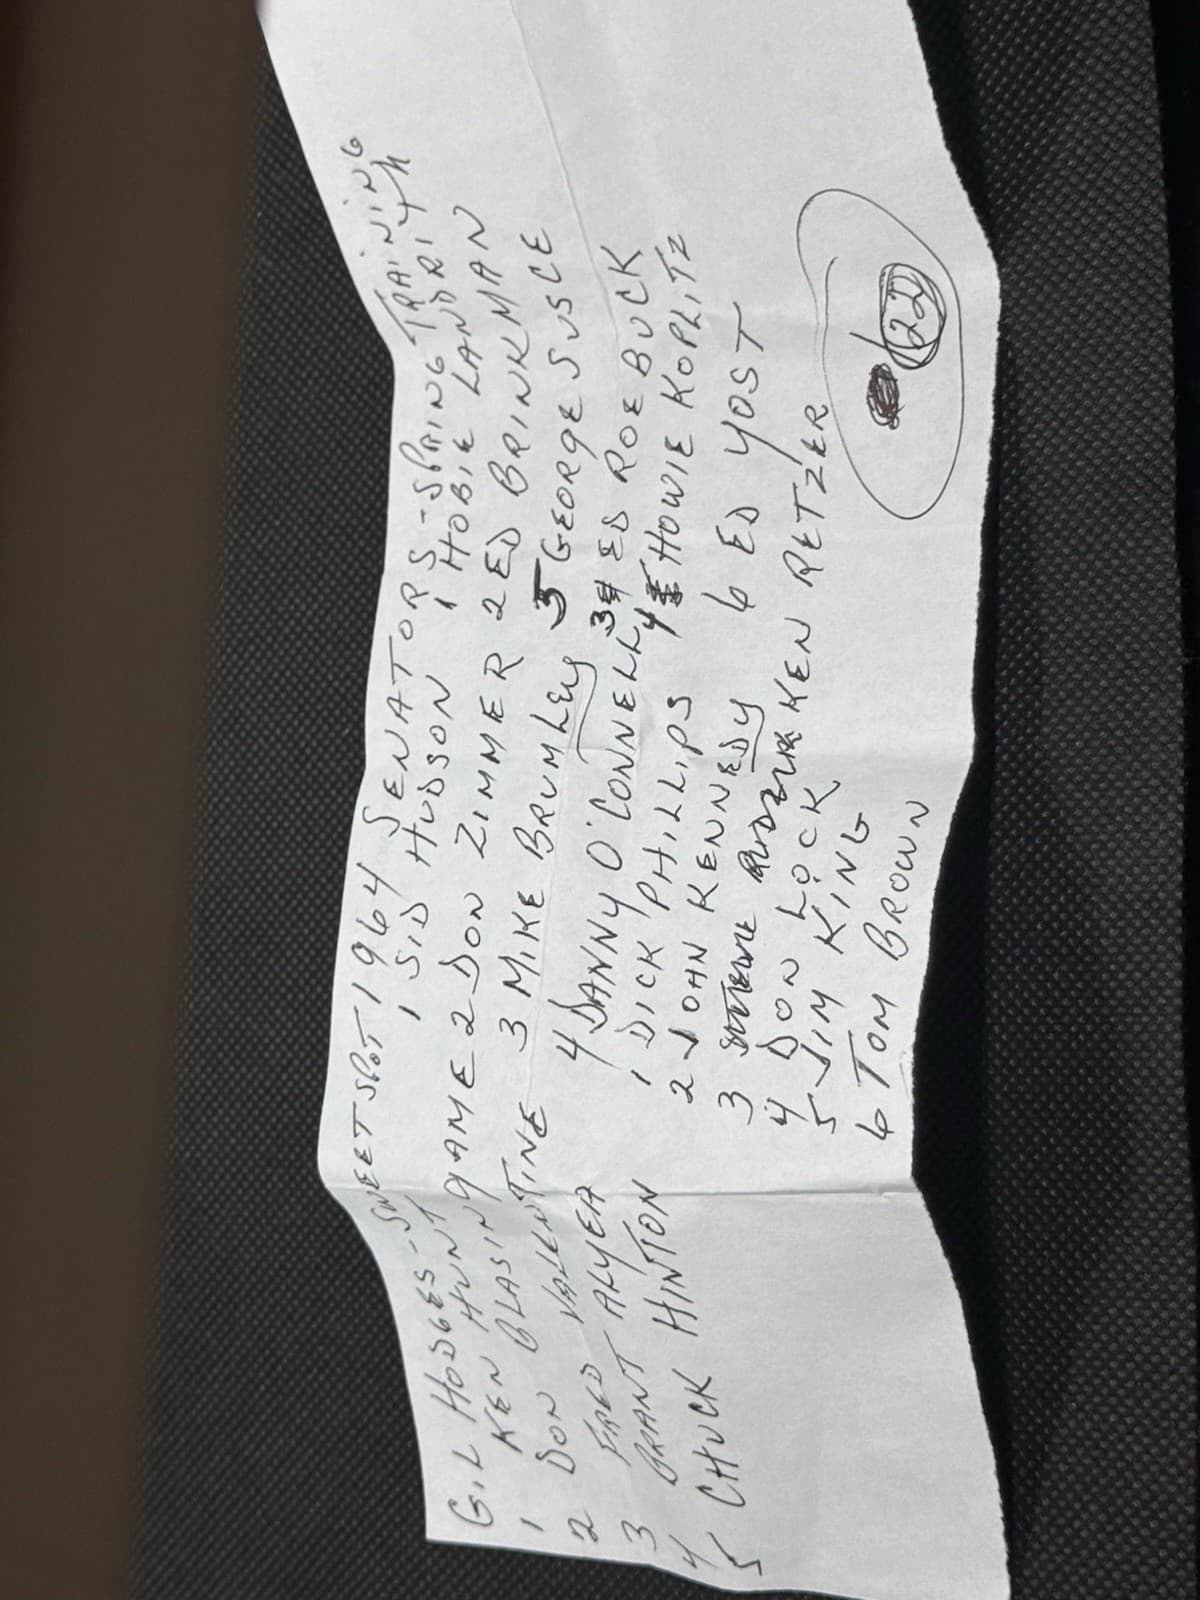 GIL HODGES-SWEET SPOT-1964 SENATORS-SPRING TRAINING
1 KEN HUNT 1 SID HUDSON 1 HOBIE LANDRITH
2 DON BLASINGAME 2 DON ZIMMER 2 ED BRINKMAN
3 FRED VALENTINE 3 MIKE BRUMLEY 5 GEORGE SUSCE
4 BRANT ALYEA 4 DANNY O'CONNELL 3 ED ROEBUCK
5 CHUCK HINTON 1 DICK PHILLIPS 4 HOWIE KOPLITZ
2 JOHN KENNEDY 6 ED YOST
3 KEN RETZER
4 DON LOCK
5 JIM KING
6 TOM BROWN
122